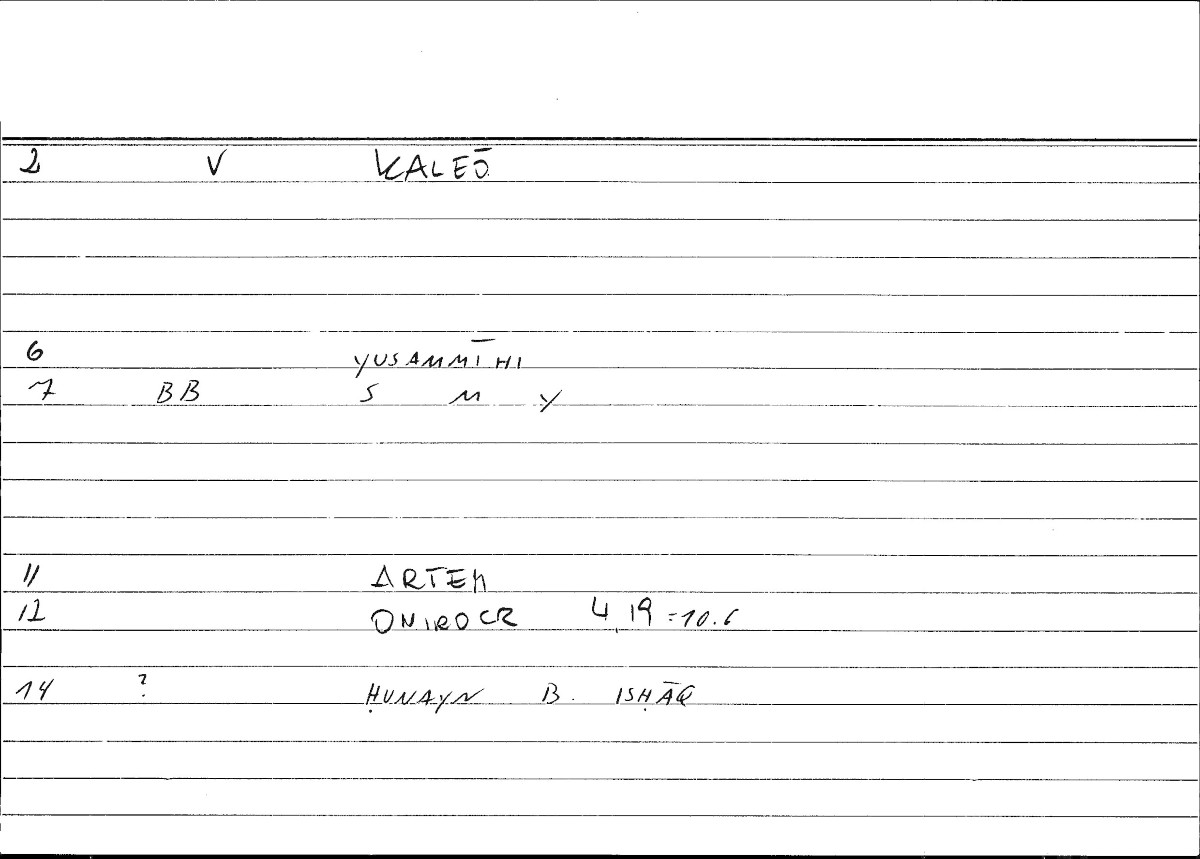 2 V KALEŌ
6 YUSAMMĪHI
7 BB S M Y
11 ARTEM
12 ONIROCR 4,19=10.6
14 ? ḤUNAYN B. ISḤĀQ